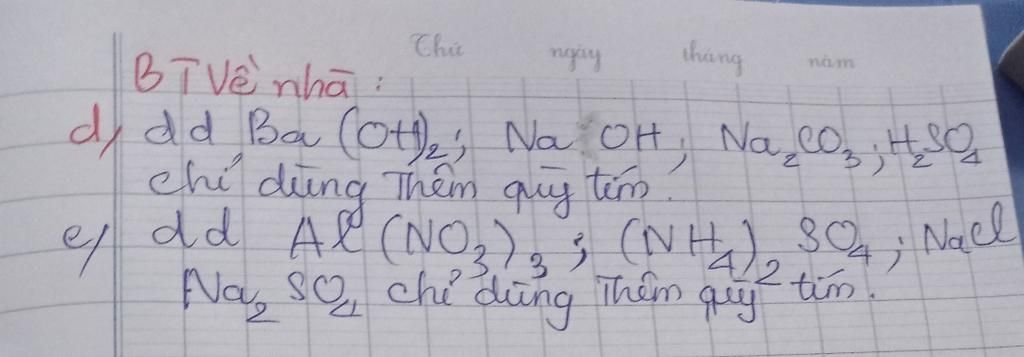 Thứ ngày tháng năm
BT Về nhà :
d) dd Ba(OH)₂; NaOH; Na₂CO₃; H₂SO₄
chỉ dùng Thêm quỳ tím.
e) dd Al(NO₃)₃; (NH₄)₂SO₄; NaCl
Na₂SO₄ chỉ dùng Thêm quỳ tím.